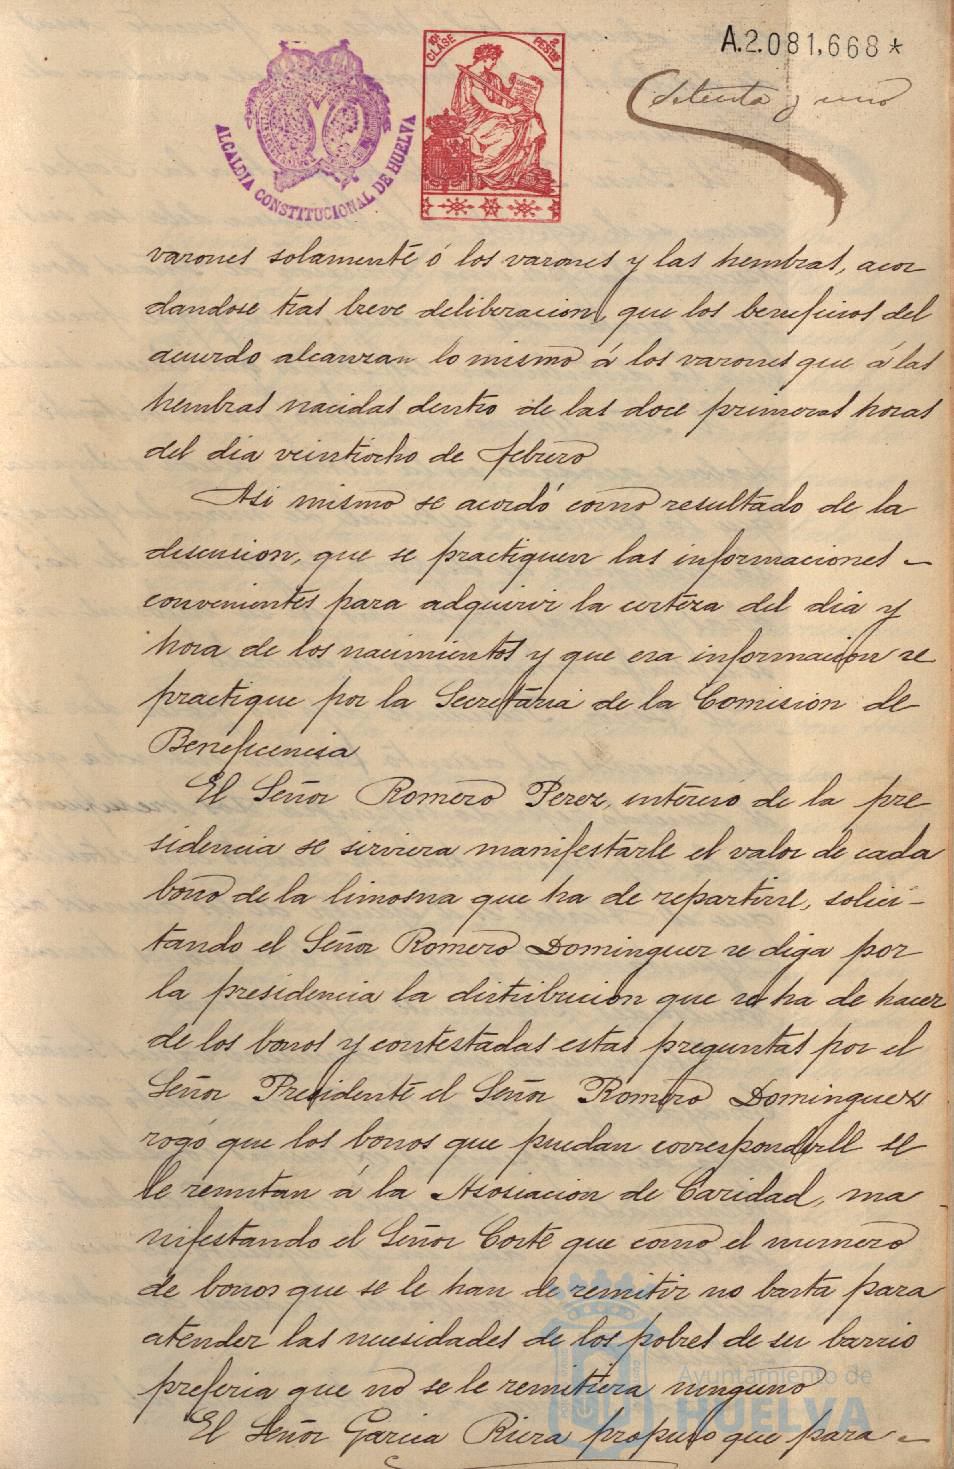 A.2.081,668*
Setenta y uno
ALCALDIA CONSTITUCIONAL DE HUELVA
10ª CLASE
2 PESETAS
varones solamente ó los varones y las hembras, acor
dandose tras breve deliberacion, que los beneficios del
acuerdo alcanzan lo mismo á los varones que á las
hembras nacidas dentro de las doce primeras horas
del dia veintiocho de febrero
Asi mismo se acordó como resultado de la
discusion, que se practiquen las informaciones -
convenientes para adquirir la certeza del dia y
hora de los nacimientos y que esa informacion se
practique por la Secretaria de la Comision de
Beneficencia
El Señor Romero Perez, intereso de la pre-
sidencia se sirviera manifestarle el valor de cada
bono de la limosna que ha de repartirse, solici-
tando el Señor Romero Dominguez se diga por
la presidencia la distribucion que se ha de hacer
de los bonos y contestadas estas preguntas por el
Señor Presidente el Señor Romero Dominguez
rogó que los bonos que puedan corresponderle se
le remitan á la Asosiacion de Caridad, ma
nifestando el Señor Corte que como el numero
de bonos que se le han de remitir no basta para
atender las necesidades de los pobres de su barrio
preferia que no se le remitiera ninguno
El Señor Garcia Riera propuso que para -
Ayuntamiento de
HUELVA